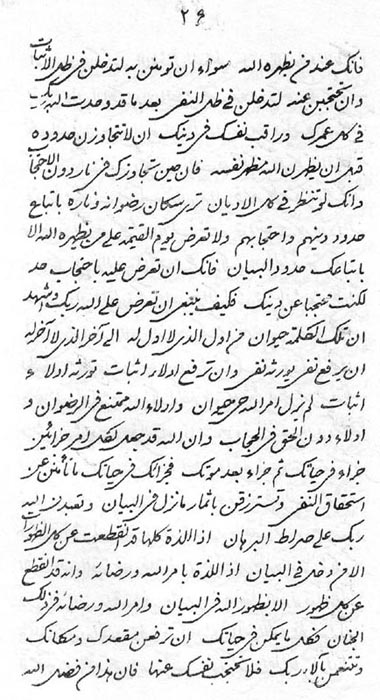 ٢٦
فانک عند من یظهره الله سواء ان تومنن به لتدخلن فی ظل الاثبات
وان تحتجبن عنه لتدخلن فی ظل النفی بعد ما قد وحدت الله ربک
فی کل عمرک وراقب نفسک فی دینک ان لا تتجاوزن حدوده
قبل ان یظهرن الله مظهر نفسه فان حین تتجاوزک فی نار دون الاحتجاب
وانک لو تنظر فی کل الادیان تری سکان رضوانه وناره باتباع
حدود دینهم واحتجابهم ولا تعرض یوم القیمة علی من یظهره الله الا
باتباعک حدود البیان فانک ان تعرض علیه باحتجاب حد
لکنت محتجبا عن دینک فکیف ینبغی ان تعرض علی الله ربک واشهد
ان تلک الکلمة حیوان من اول الذی لا اول له الی آخر الذی لا آخر له
ان یرفع نفی یورثه نفی وان ترفع اولاء اثبات تورثه اولاء
اثبات لم یزل امر الله حی حیوان وادلاء الله ممتنع فی الرضوان و
ادلاء دون الحق فی الحجاب وان الله قد جعل لکل امر جزائین
جزاء فی حیاتک ثم جزاء بعد موتک فجزائک فی حیاتک ما تأمنن عن
استحقاق النفی وتسترزقن باثمار ما نزل فی البیان وتعبدن الله
ربک علی صراط البرهان اذ اللذة کلها قد انقطعت عن کل الظهورات
الا من دخل فی البیان اذ اللذة بامر الله ورضائه وانه قد انقطع
عن کل ظهور الا بظهور الله فی البیان وامر الله ورضائه فی ذلک
الجنان فکل ما یمکن فی حیاتک ان ترفعن مقعدک ومکانک
وتتنعمن بآلاء ربک فلا تحتجب نفسک عنها فان هذا من فضل الله